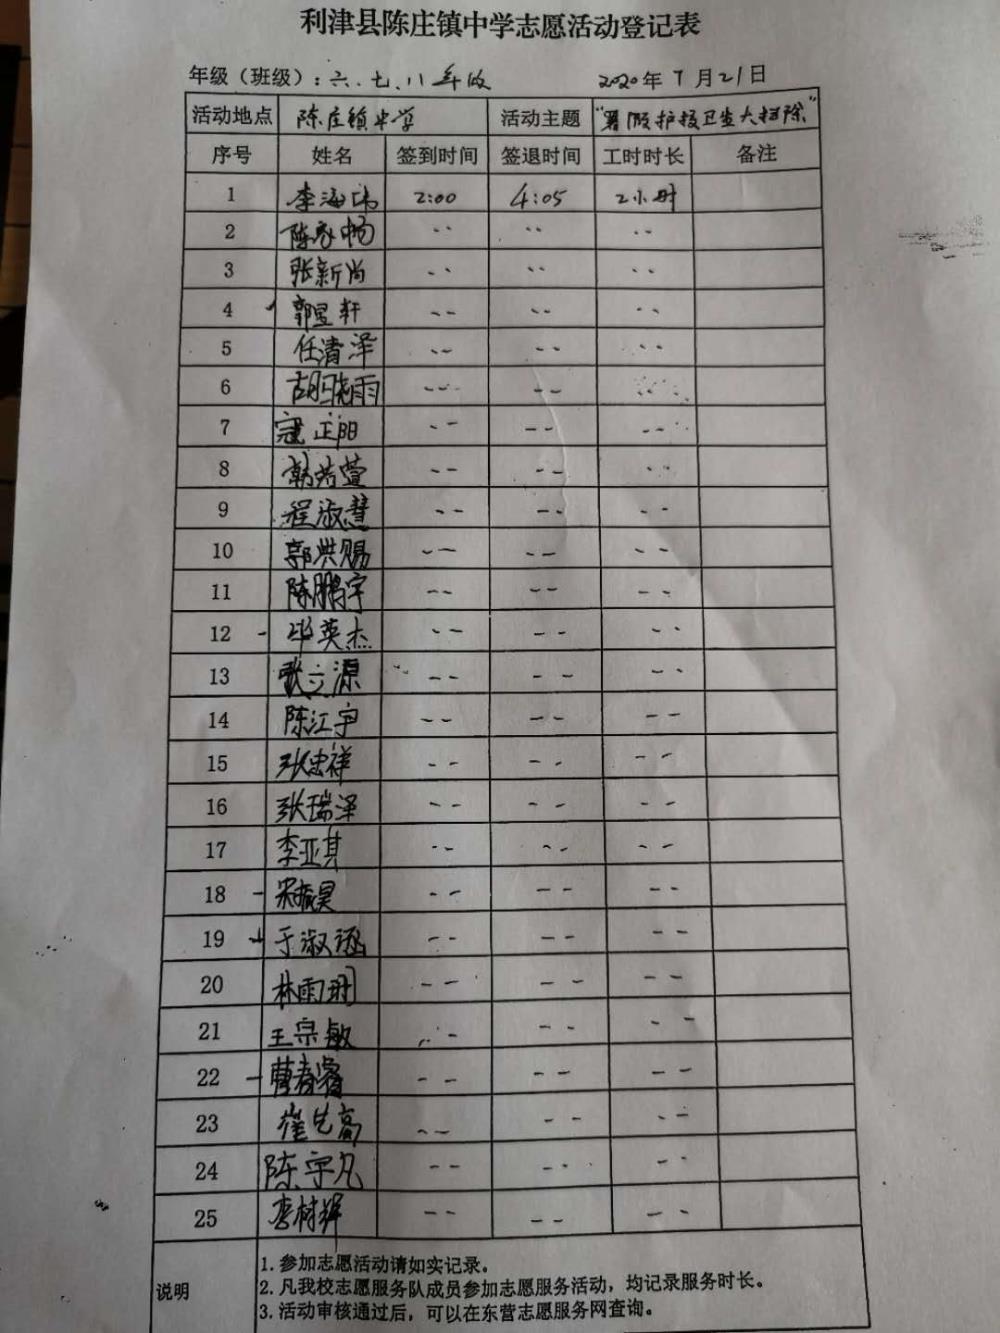 利津县陈庄镇中学志愿活动登记表
年级（班级）：六、七、八年级 2020年7月21日
活动地点 陈庄镇中学 活动主题 "暑假护校卫生大扫除"
序号 姓名 签到时间 签退时间 工时时长 备注
1 李海 2:00 4:05 2小时
2 陈家畅 -- -- --
3 张新尚 -- -- --
4 郭昱轩 -- -- --
5 任清泽 -- -- --
6 胡晓雨 -- -- --
7 寇正阳 -- -- --
8 韩若萱 -- -- --
9 程淑慧 -- -- --
10 郭洪赐 -- -- --
11 陈鹏宇 -- -- --
12 毕英杰 -- -- --
13 张立源 -- -- --
14 陈江宇 -- -- --
15 张忠祥 -- -- --
16 张瑞泽 -- -- --
17 李亚其 -- -- --
18 宋振昊 -- -- --
19 于淑涵 -- -- --
20 林雨玥 -- -- --
21 王宗敏 -- -- --
22 曹春睿 -- -- --
23 崔先高 -- -- --
24 陈宇凡 -- -- --
25 李树辉 -- -- --
说明
1. 参加志愿活动请如实记录。
2. 凡我校志愿服务队成员参加志愿服务活动，均记录服务时长。
3. 活动审核通过后，可以在东营志愿服务网查询。